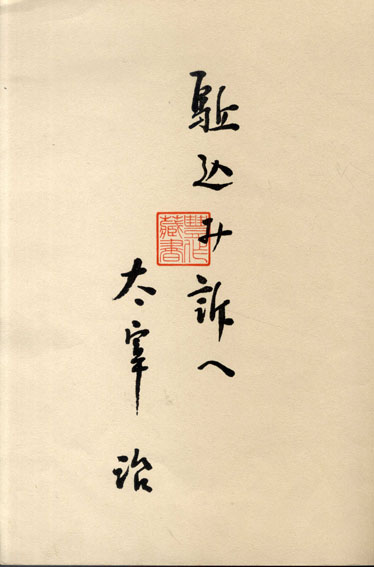 駈込み訴へ
藏書
太宰治